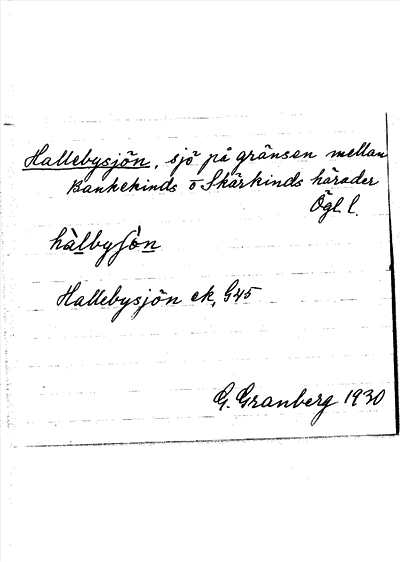 Hallebysjön, sjö på gränsen mellan
Bankekinds o Skärkinds härader
Ögl l.
hàlbyʃón
Hallebysjön ek, G45
G. Granberg 1930